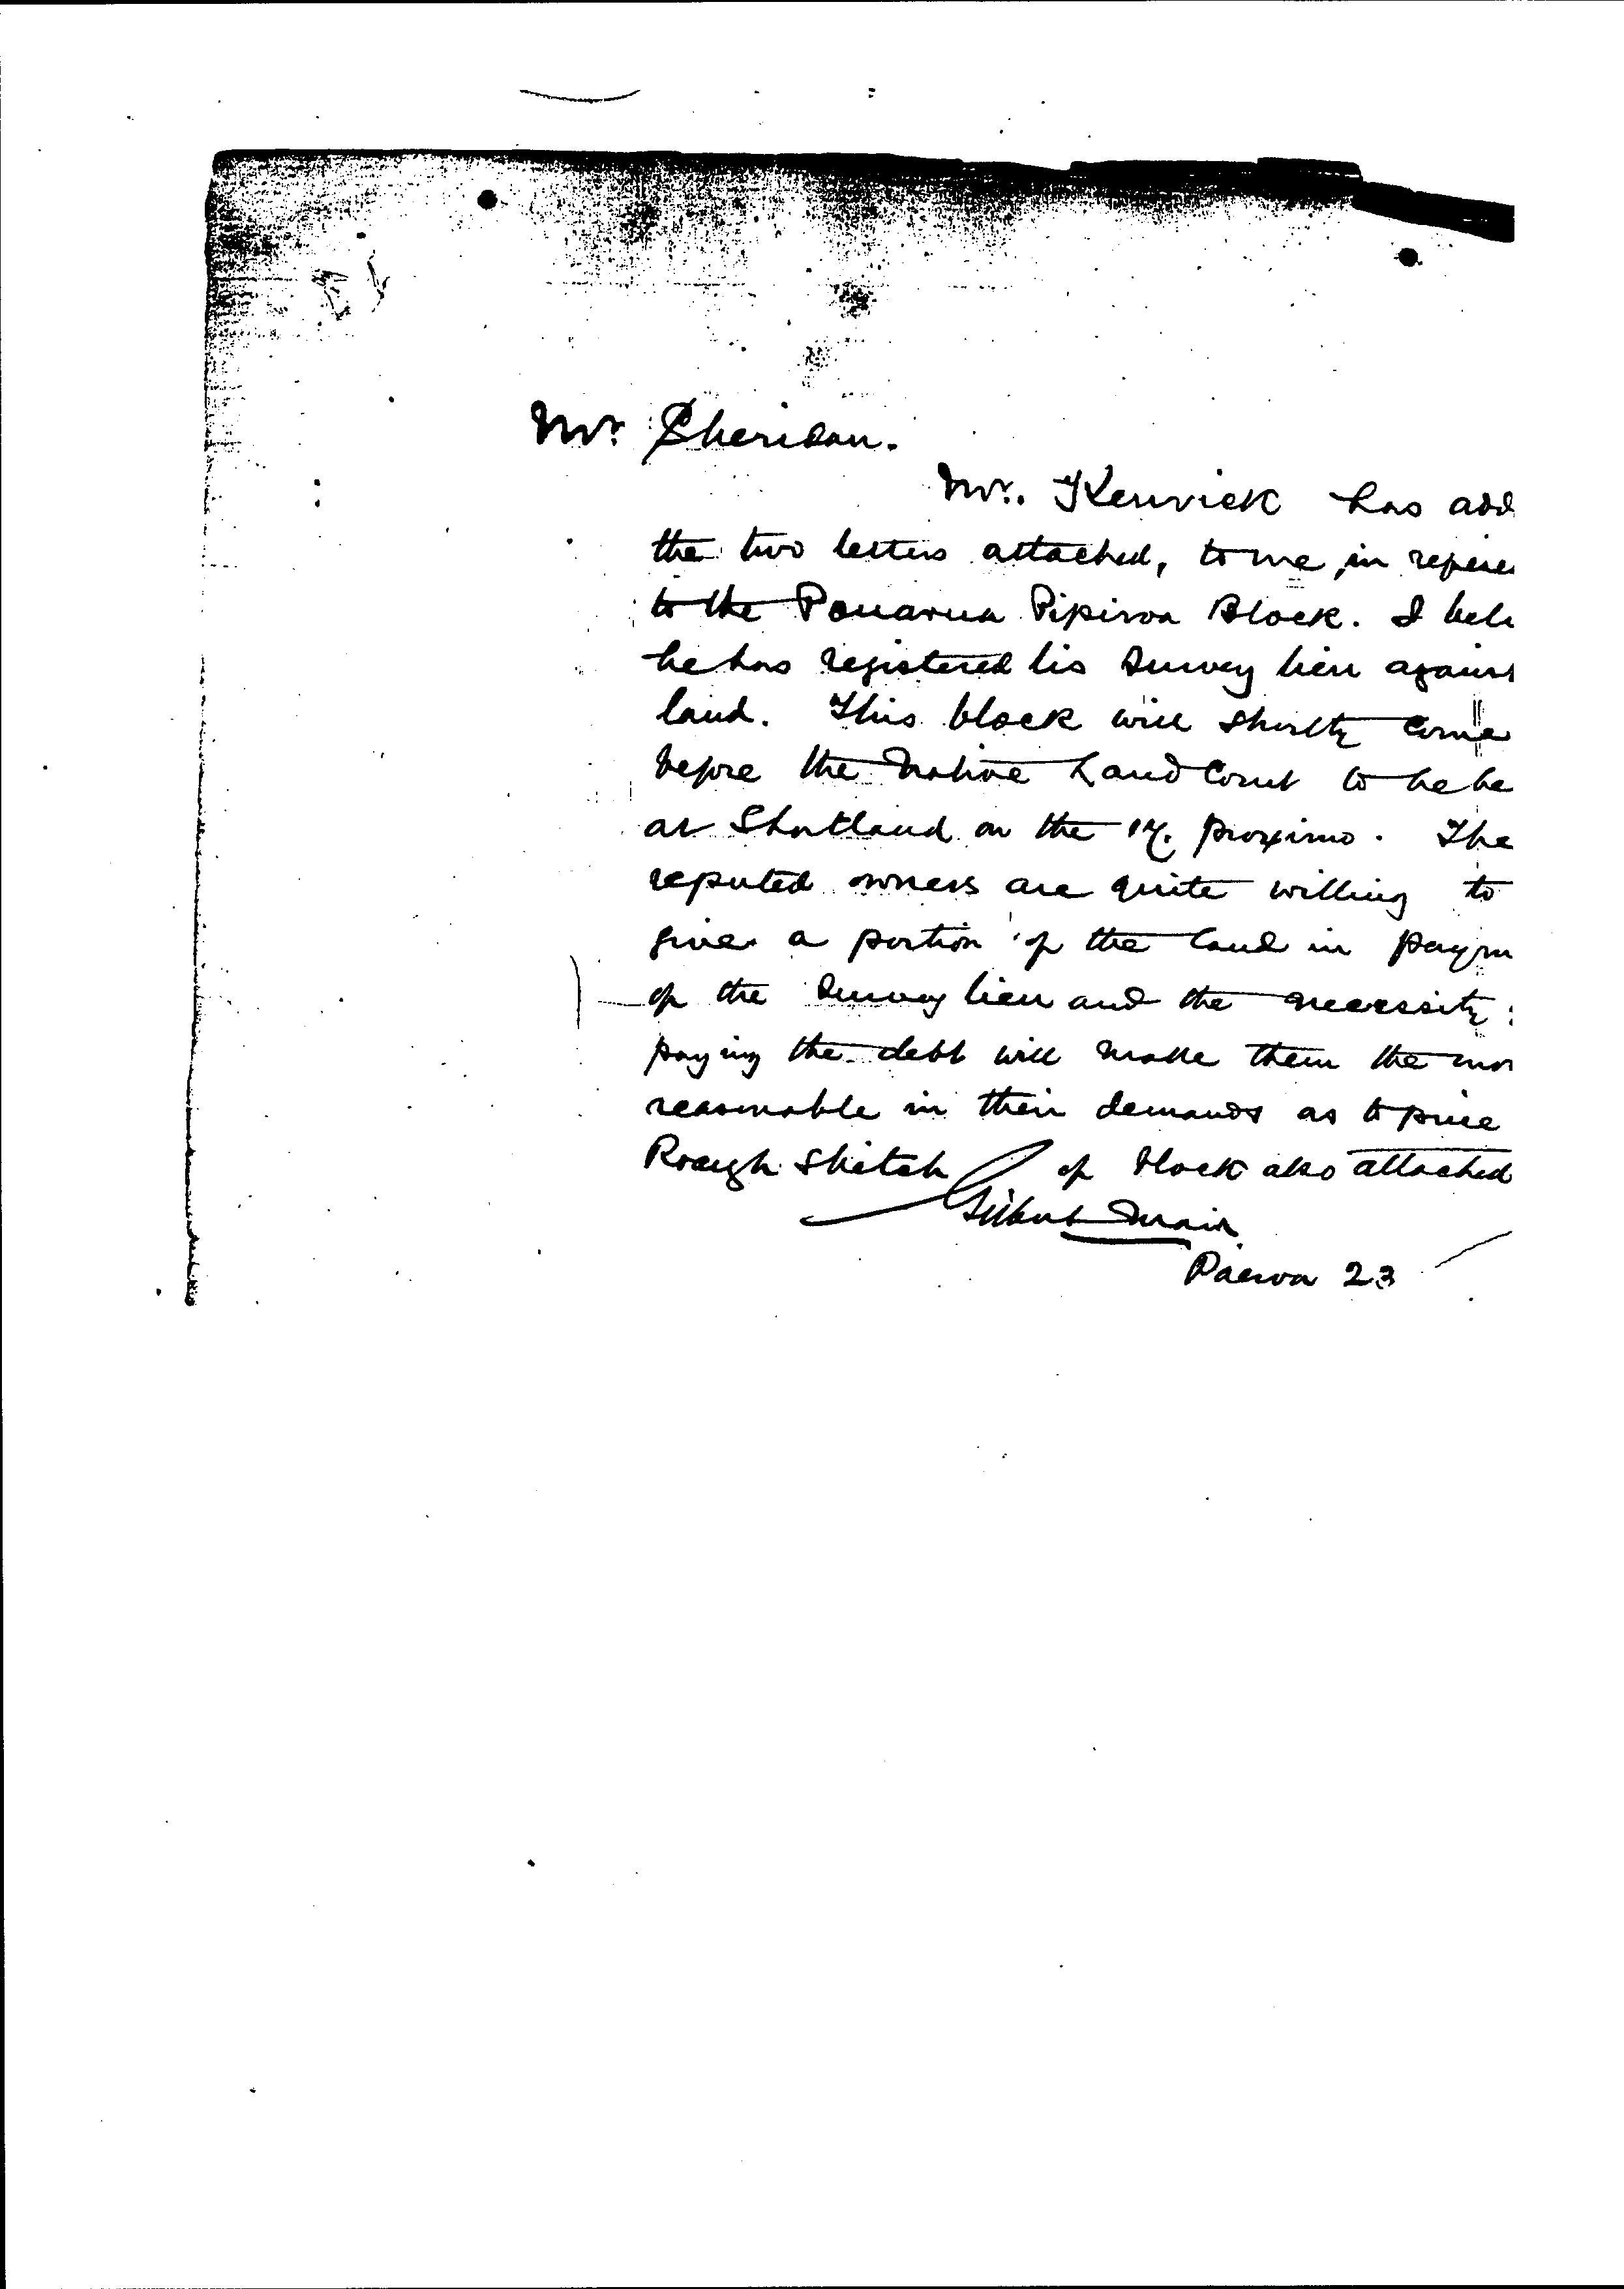 Mr. Sheridan.
Mr. Kenrick has add
the two letters attached, to me, in refere
to the Pouarua Pipiroa Block. I beli
he has registered his Survey lien agains
land. This block will shortly come
before the Native Land Court to be he
at Shortland on the 17. proximo. The
reputed owners are quite willing to
give a portion of the land in paym
of the Survey lien and the necessity
paying the debt will make them the mor
reasonable in their demands as to price
Rough Sketch of Block also attached
Gilbert Mair
Paeroa 23